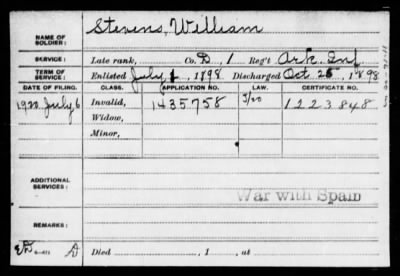 NAME OF SOLDIER: Stevens, William
SERVICE: Late rank, Co. D, 1 Reg't Ark. Inf.
TERM OF SERVICE: Enlisted July 1, 1898 Discharged Oct 25, 1898
DATE OF FILING. CLASS. APPLICATION NO. LAW. CERTIFICATE NO.
1920, July 6 Invalid, 1435758 5/20 1223848
Widow,
Minor,
ADDITIONAL SERVICES:
War with Spain
REMARKS:
Died , 1 , at